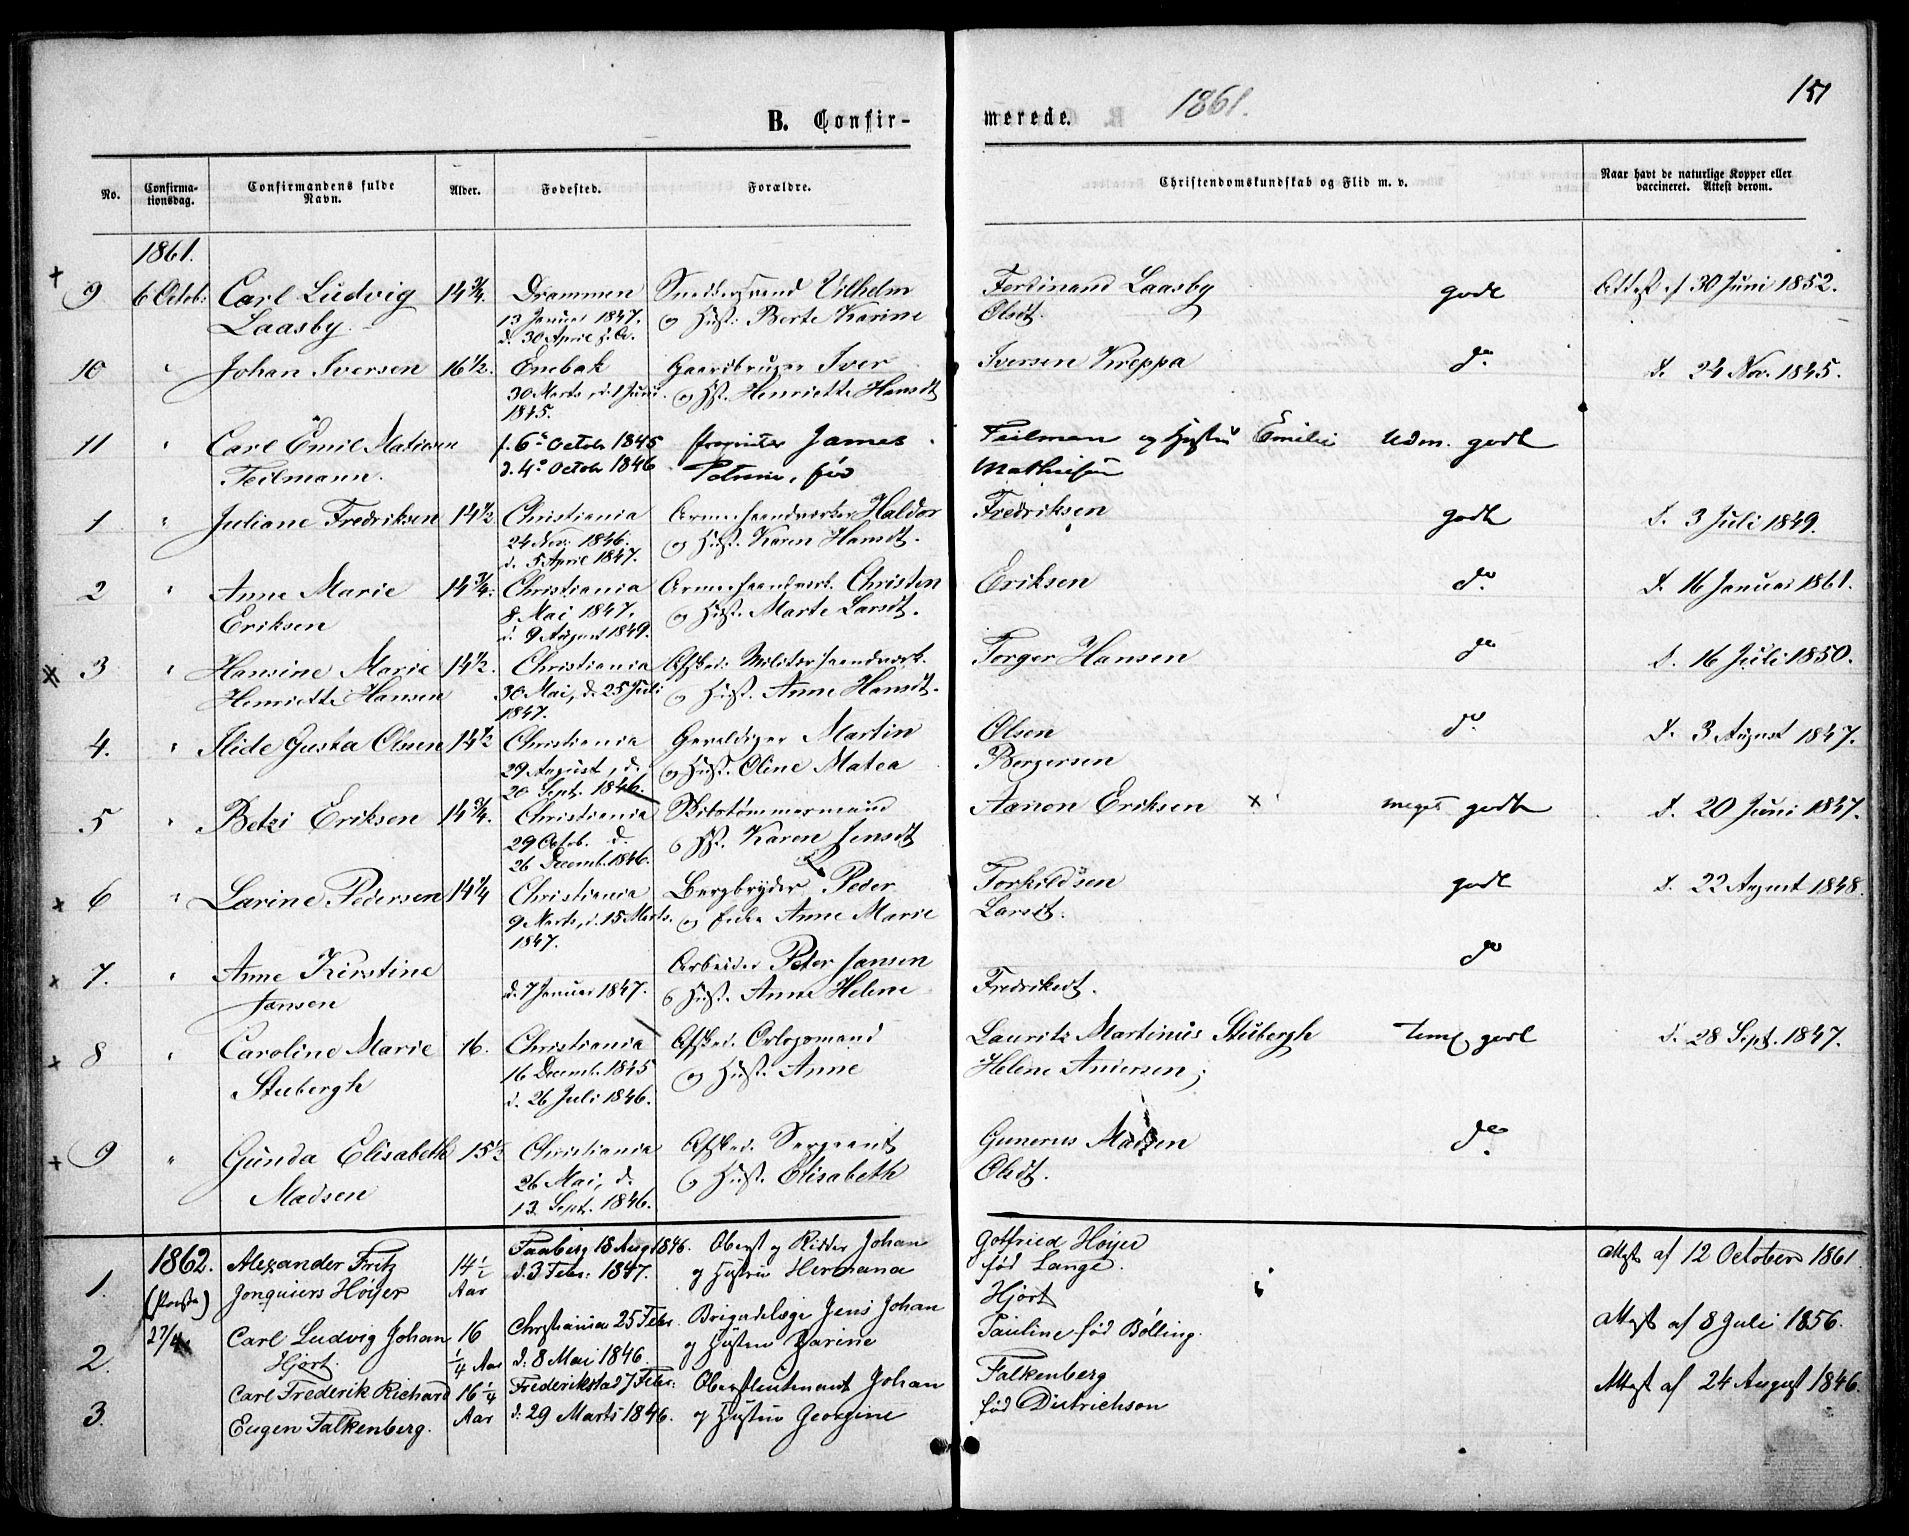 151
B. Confir-
merede.
1861.
No.
Confirma-
tionsdag.
Confirmandens fulde
Navn.
Alder.
Fødested.
Forældre.
Christendomskundskab og Flid m. v.
Naar havt de naturlige Kopper eller
vaccineret. Attest derom.
1861.
9 6 Octob: Carl Ludvig 14 3/4. Drammen Vilhelm Ferdinand Laasby godt Attest af 30 Juni 1852.
Laasby. 13 Januar 1847. og Hust: Berte Karine Olsdt.
d. 30 April
10 " Johan Iversen 16 1/2. Enebak Iver Iversen Kreppa do d. 24 Nov. 1845.
30 Marts, d. 1 Juni og Hst. Henriette Hansdt
1845.
11 " Carl Emil Matiesen f. 6te Octobr 1846 James Teilman og Hustru Emilie Udm. godt
Teilmann. d. 4de Octobr 1846 Petrine, før Mathiesen
1 " Juliane Fredriksen 14 1/2 Christiania Haldor Fredriksen godt d. 3 Juli 1849.
24 Nov: 1846. og Hust. Karen Hansdt.
d. 5 April 1847.
2 " Anne Marie 14 3/4. Christiania Christen Eriksen do d. 16 Januar 1861.
Eriksen 8 Mai 1847. og Hust. Marte Larsdt.
d. 9 August 1849.
3 " Hansine Marie 14 1/2. Christiania Afsked. Militær Torger Hansen do d. 16 Juli 1850.
Henriette Hansen 30 Mai, d. 25 Juli og Hust. Anne Hansdt.
1847.
4. " Gusta Olsen 14 1/2 Christiania Martin Olsen do d. 3 August 1847.
29 August, d. og Hust. Oline Matea Bergersen
20 Sept. 1846.
5 " Betzi Eriksen 14 3/4. Christiania Skibstømmermand Aanon Eriksen x meget godt d. 20 Juni 1847.
29 Octob. d. og Hst. Karen Jensdt
26 Decemb. 1846.
6 " Larine Pedersen 14 1/4 Christiania Bergbryder Peder Torkildsen godt d. 22 August 1848.
9 Marts, d. 15 Marts. og Enke Anne Marie Larsdt.
1847.
7. " Anne Kirstine Arbeider Peter Jansen do
Jansen d. 7 Januar 1847. og Hust. Anne Helene Fredriksdt.
8 " Caroline Marie 16. Christiania Afsked. Orlogsmand Lauritz Martinus Stubergh temf godt d. 28 Sept. 1847.
Stubergh 16 Decemb. 1845 og Hust. Anne Helene Andersen;
d. 26 Juli 1846.
9 " Gunda Elisabeth 15 1/2 Christiania Afsked. Sergeant Gunerus Madsen do
Madsen 26 Mai, d. og Hust. Elisabeth Olsdt.
13. Sept. 1846.
1. 1862. Alexander Fritz 14 1/2 Faaberg 18 Aug 1846. Oberst og Ridder Johan Gotfried Høyer Attest af 12 October 1861
Jonquiers Høyer Aar d. 3 Febr: 1847. og Hustru Hermana fød Lange.
2. 27/4. Carl Ludvig Johan 16 Christiania 25 Febr. Brigadelæge Jens Johan Hjort Attest af 8 Juli 1856.
Hjort. 1/4 Aar d: 8 Mai 1846. og Hustru Pauline fød Bølling.
3. Carl Frederik Richard 16 1/4 Frederikstad 7 Febr: Oberstlieutenant Johan Falkenberg Attest af 24 August 1846.
Eugen Falkenberg. Aar d: 29 Marts 1846. og Hustru Georgine fød Dietrichson